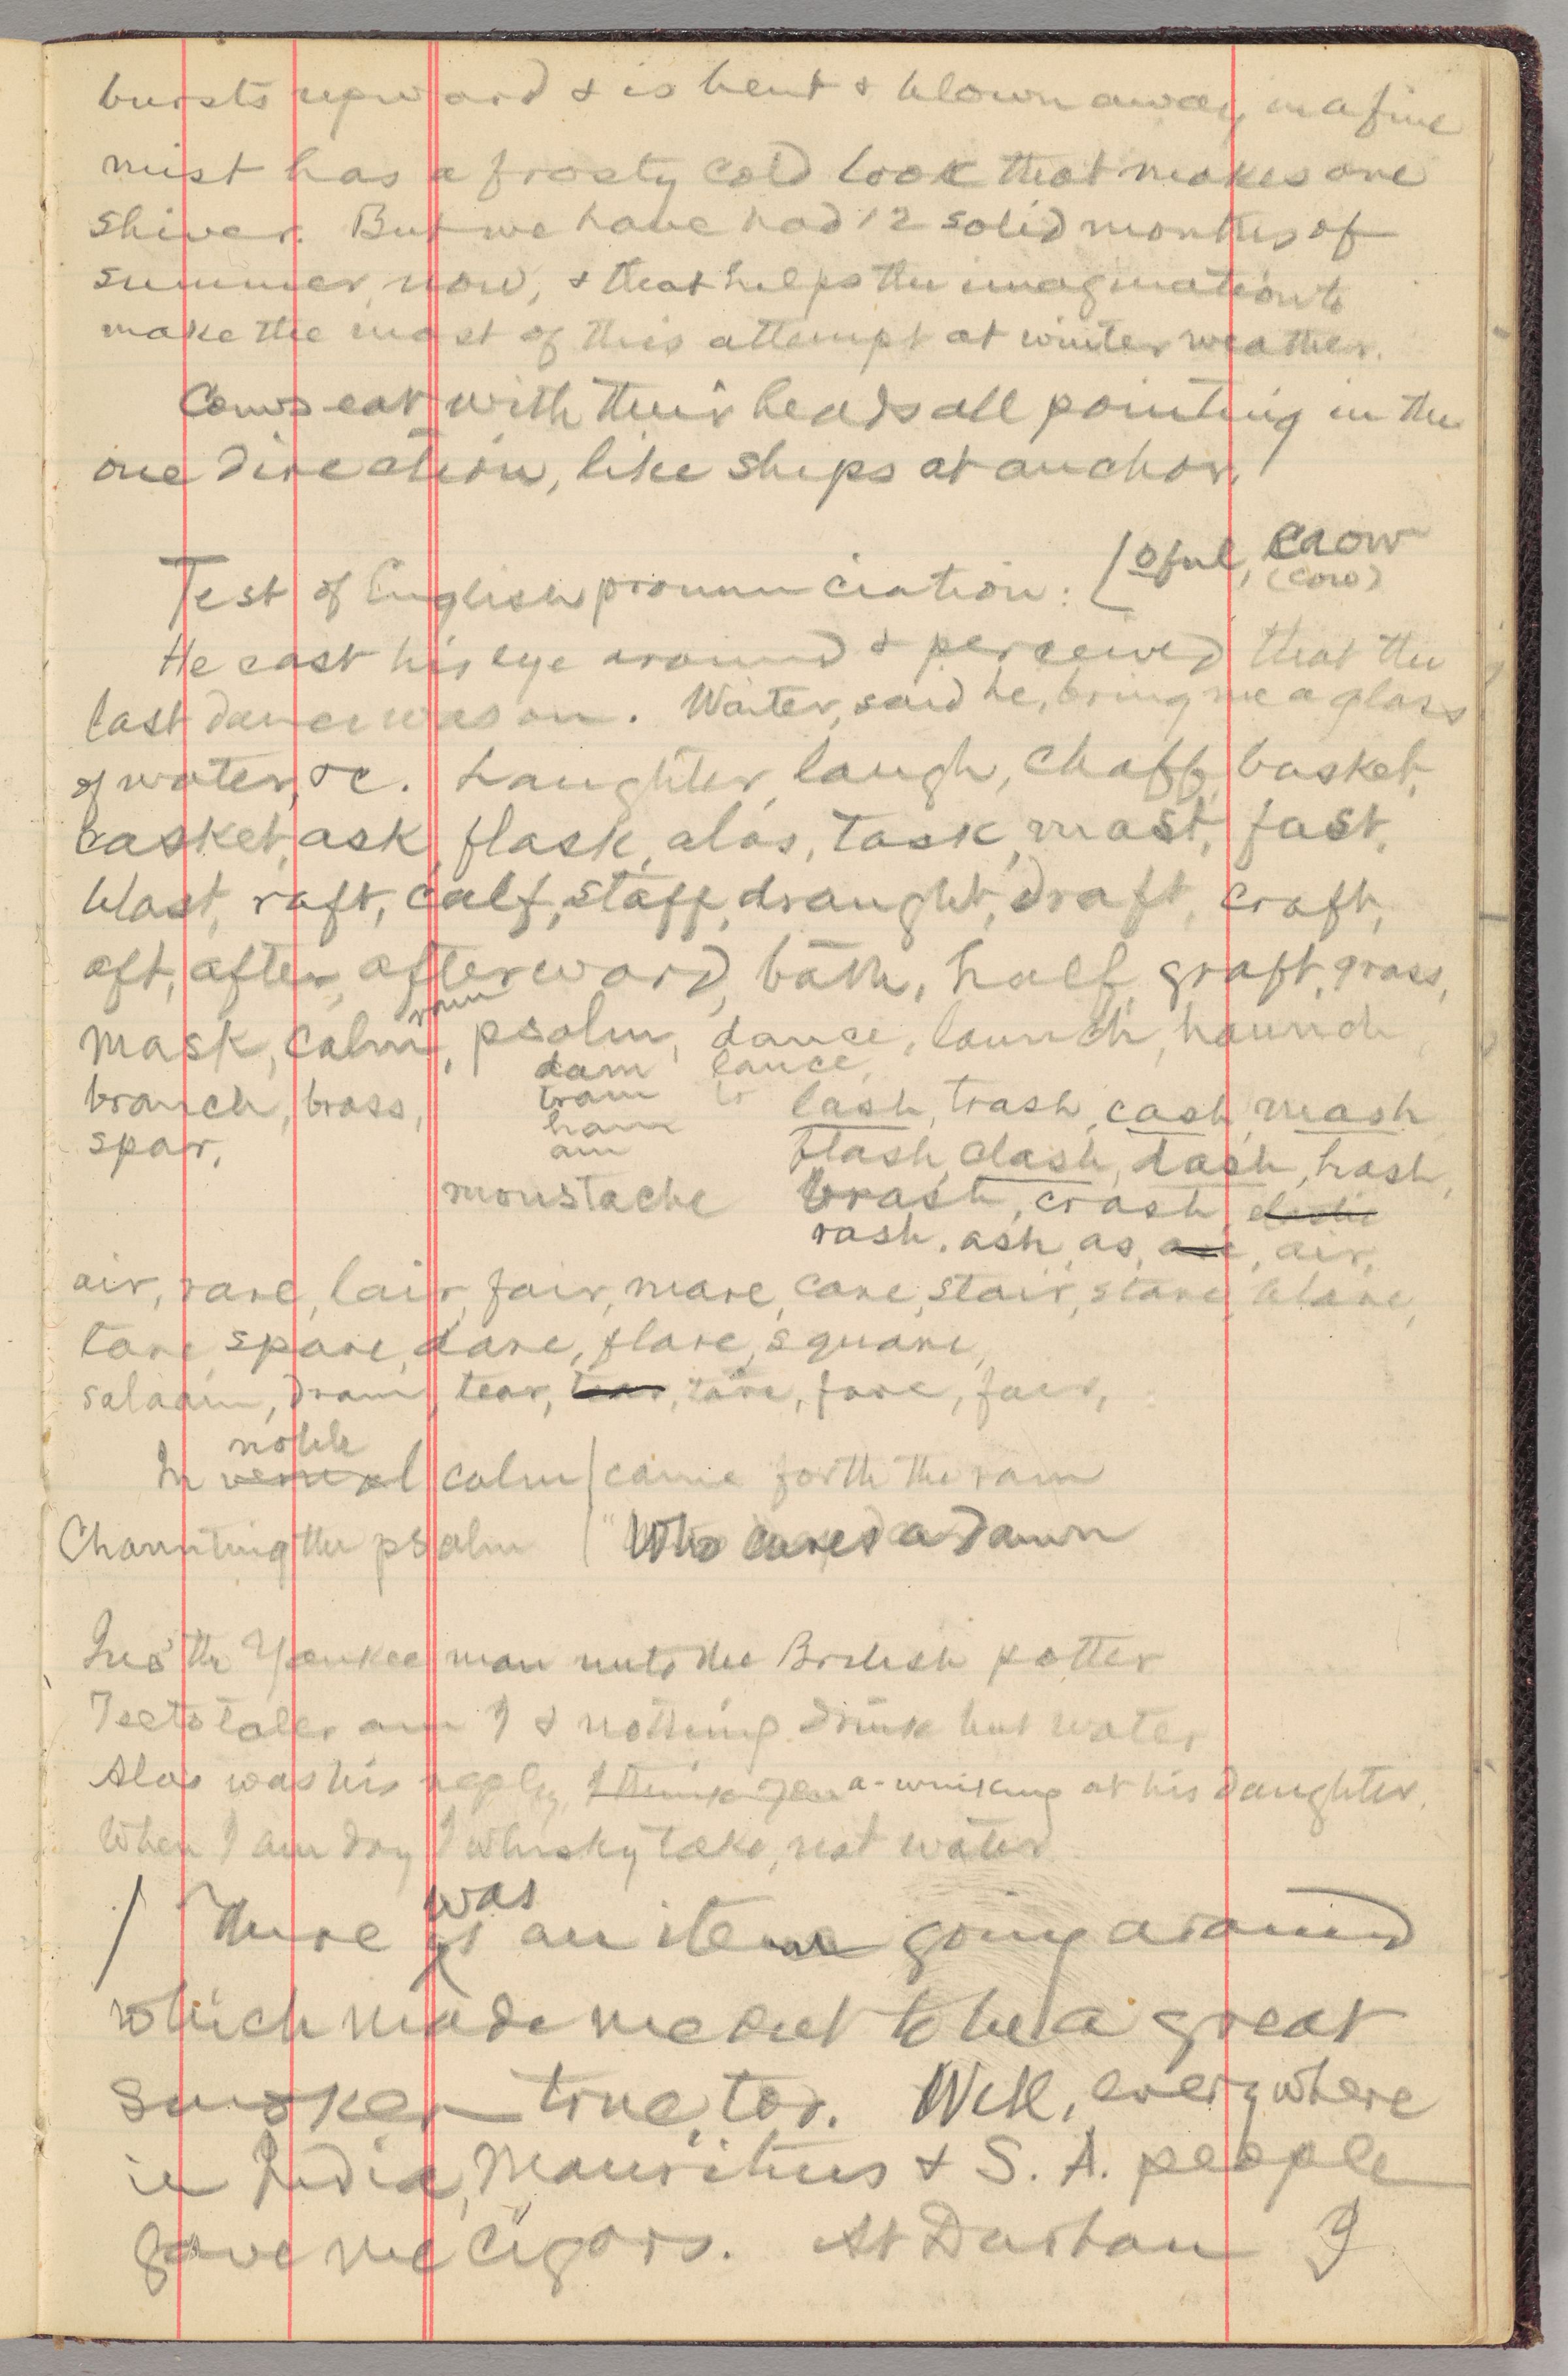 bursts upward & is bent & blown away in a fine
mist has a frosty cold look that makes one
shiver. But we have had 12 solid months of
summer, now, & that helps the imagination to
make the most of this attempt at winter weather.
Cows eat with their heads all pointing in the
one direction, like ships at anchor.
Test of English pronunciation: [ oful, caow
(cow)
He cast his eye around & perceived that the
last dance was on. Waiter, said he, bring me a glass
of water, &c. Laughter, laugh, chaff, basket,
casket, ask, flask, alas, task, mast, fast,
blast, raft, calf, staff, draught, draft, craft,
aft, after, afterward, bath, half, graft, grass,
mask, calm, psalm, dance, launch, haunch,
dam lance,
branch, brass, tram lash, trash, cash, mash
ham
spar, am flash, clash, dash, hash,
moustache brash, crash,
rash, ash, as, are, air,
air, rare, lair, fair, mare, care, stair, stare, blare,
tare, spare, dare, flare, square,
salaam, dram, tear, tear, rare, fare, fair,
noble
In vernal calm | came forth the ram
Chaunting the psalm | "Who cares a damn
the Yankee man unto the British potter
Teetotaler am I & nothing drink but water
Alas was his reply, I think a-winking at his daughter.
When I am dry I whisky take, not water
was
/ There is an item going around
which made me out to be a great
smoker—true, too. Well, everywhere
in India, Mauritius & S. A. people
gave me cigars. At Durban I